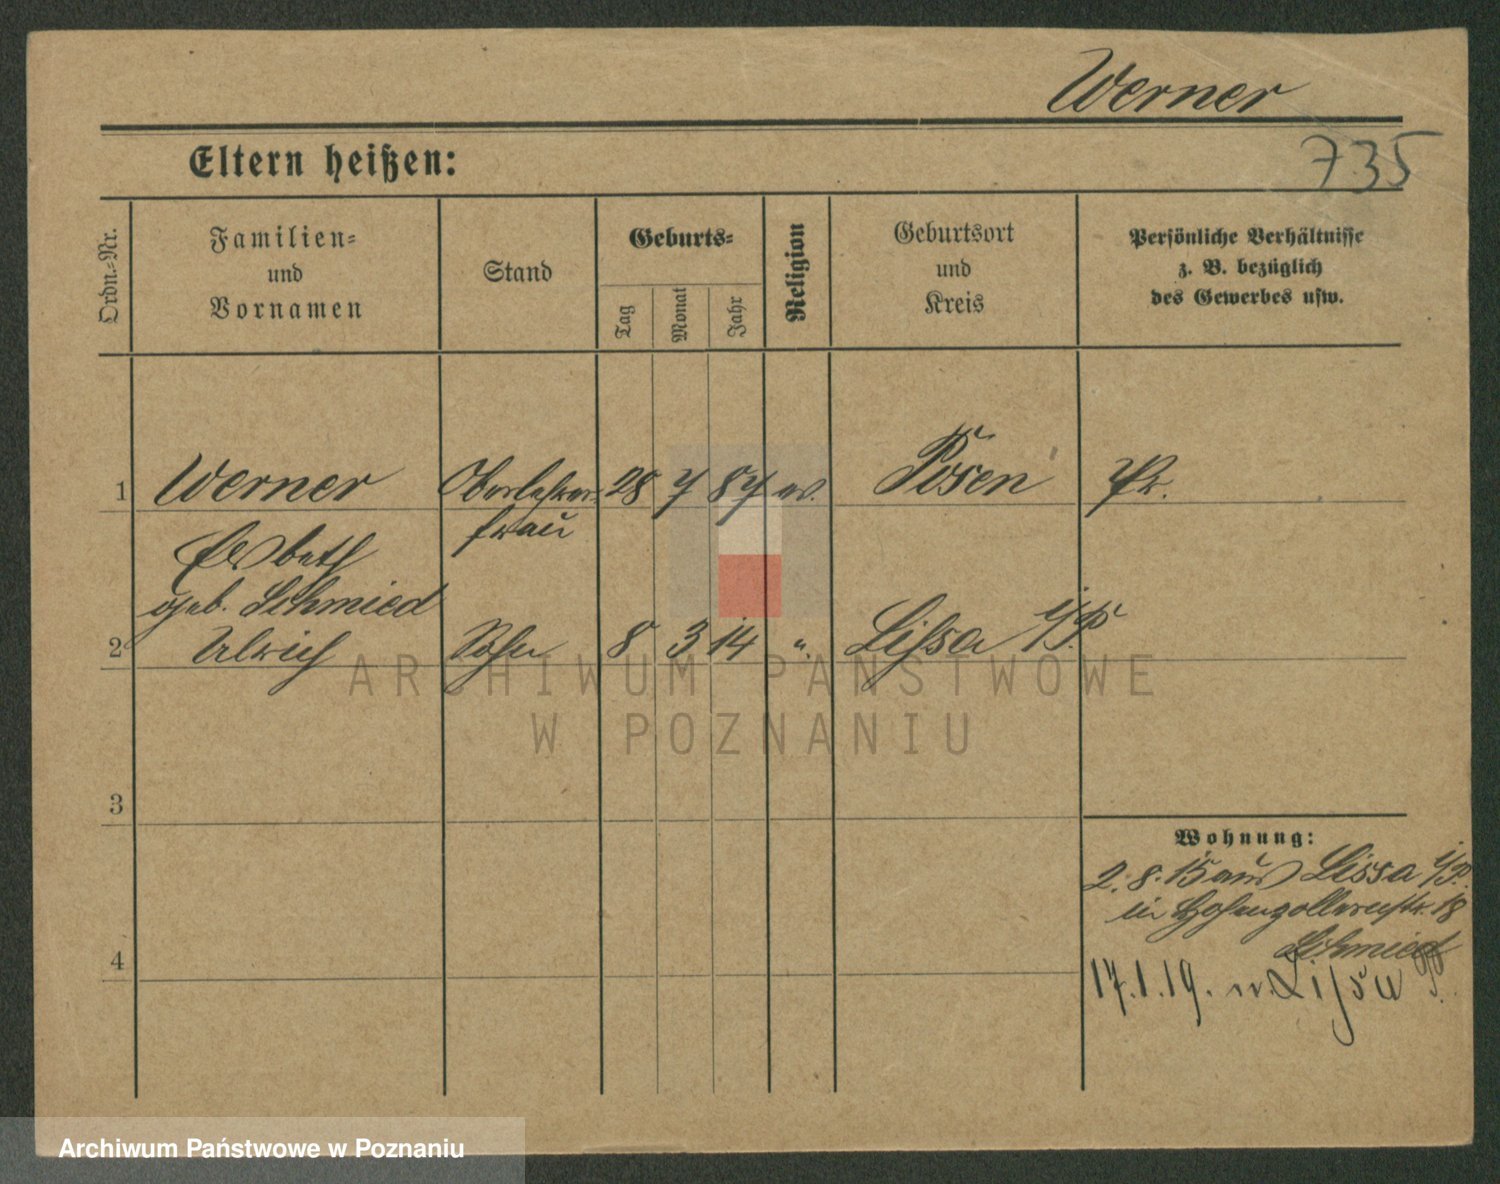 Werner
735
Eltern heißen:
Ordn.-Nr.
Familien-
und
Vornamen
Stand
Geburts-
Tag
Monat
Jahr
Religion
Geburtsort
und
Kreis
Persönliche Verhältnisse
z. B. bezüglich
des Gewerbes usw.
1 Werner Oberlehrer- 28 7 87 ev. Posen Pr.
frau
Elsbeth
geb. Schmied
2 Ulrich Sohn 8 3 14 ". Lissa i/P.
ARCHIWUM PAŃSTWOWE
W POZNANIU
3
Wohnung:
2.8.15 aus Lissa i/P.
in Hohenzollernstr. 18
Schmied
4
17.1.19. n. Lissa P.
Archiwum Państwowe w Poznaniu